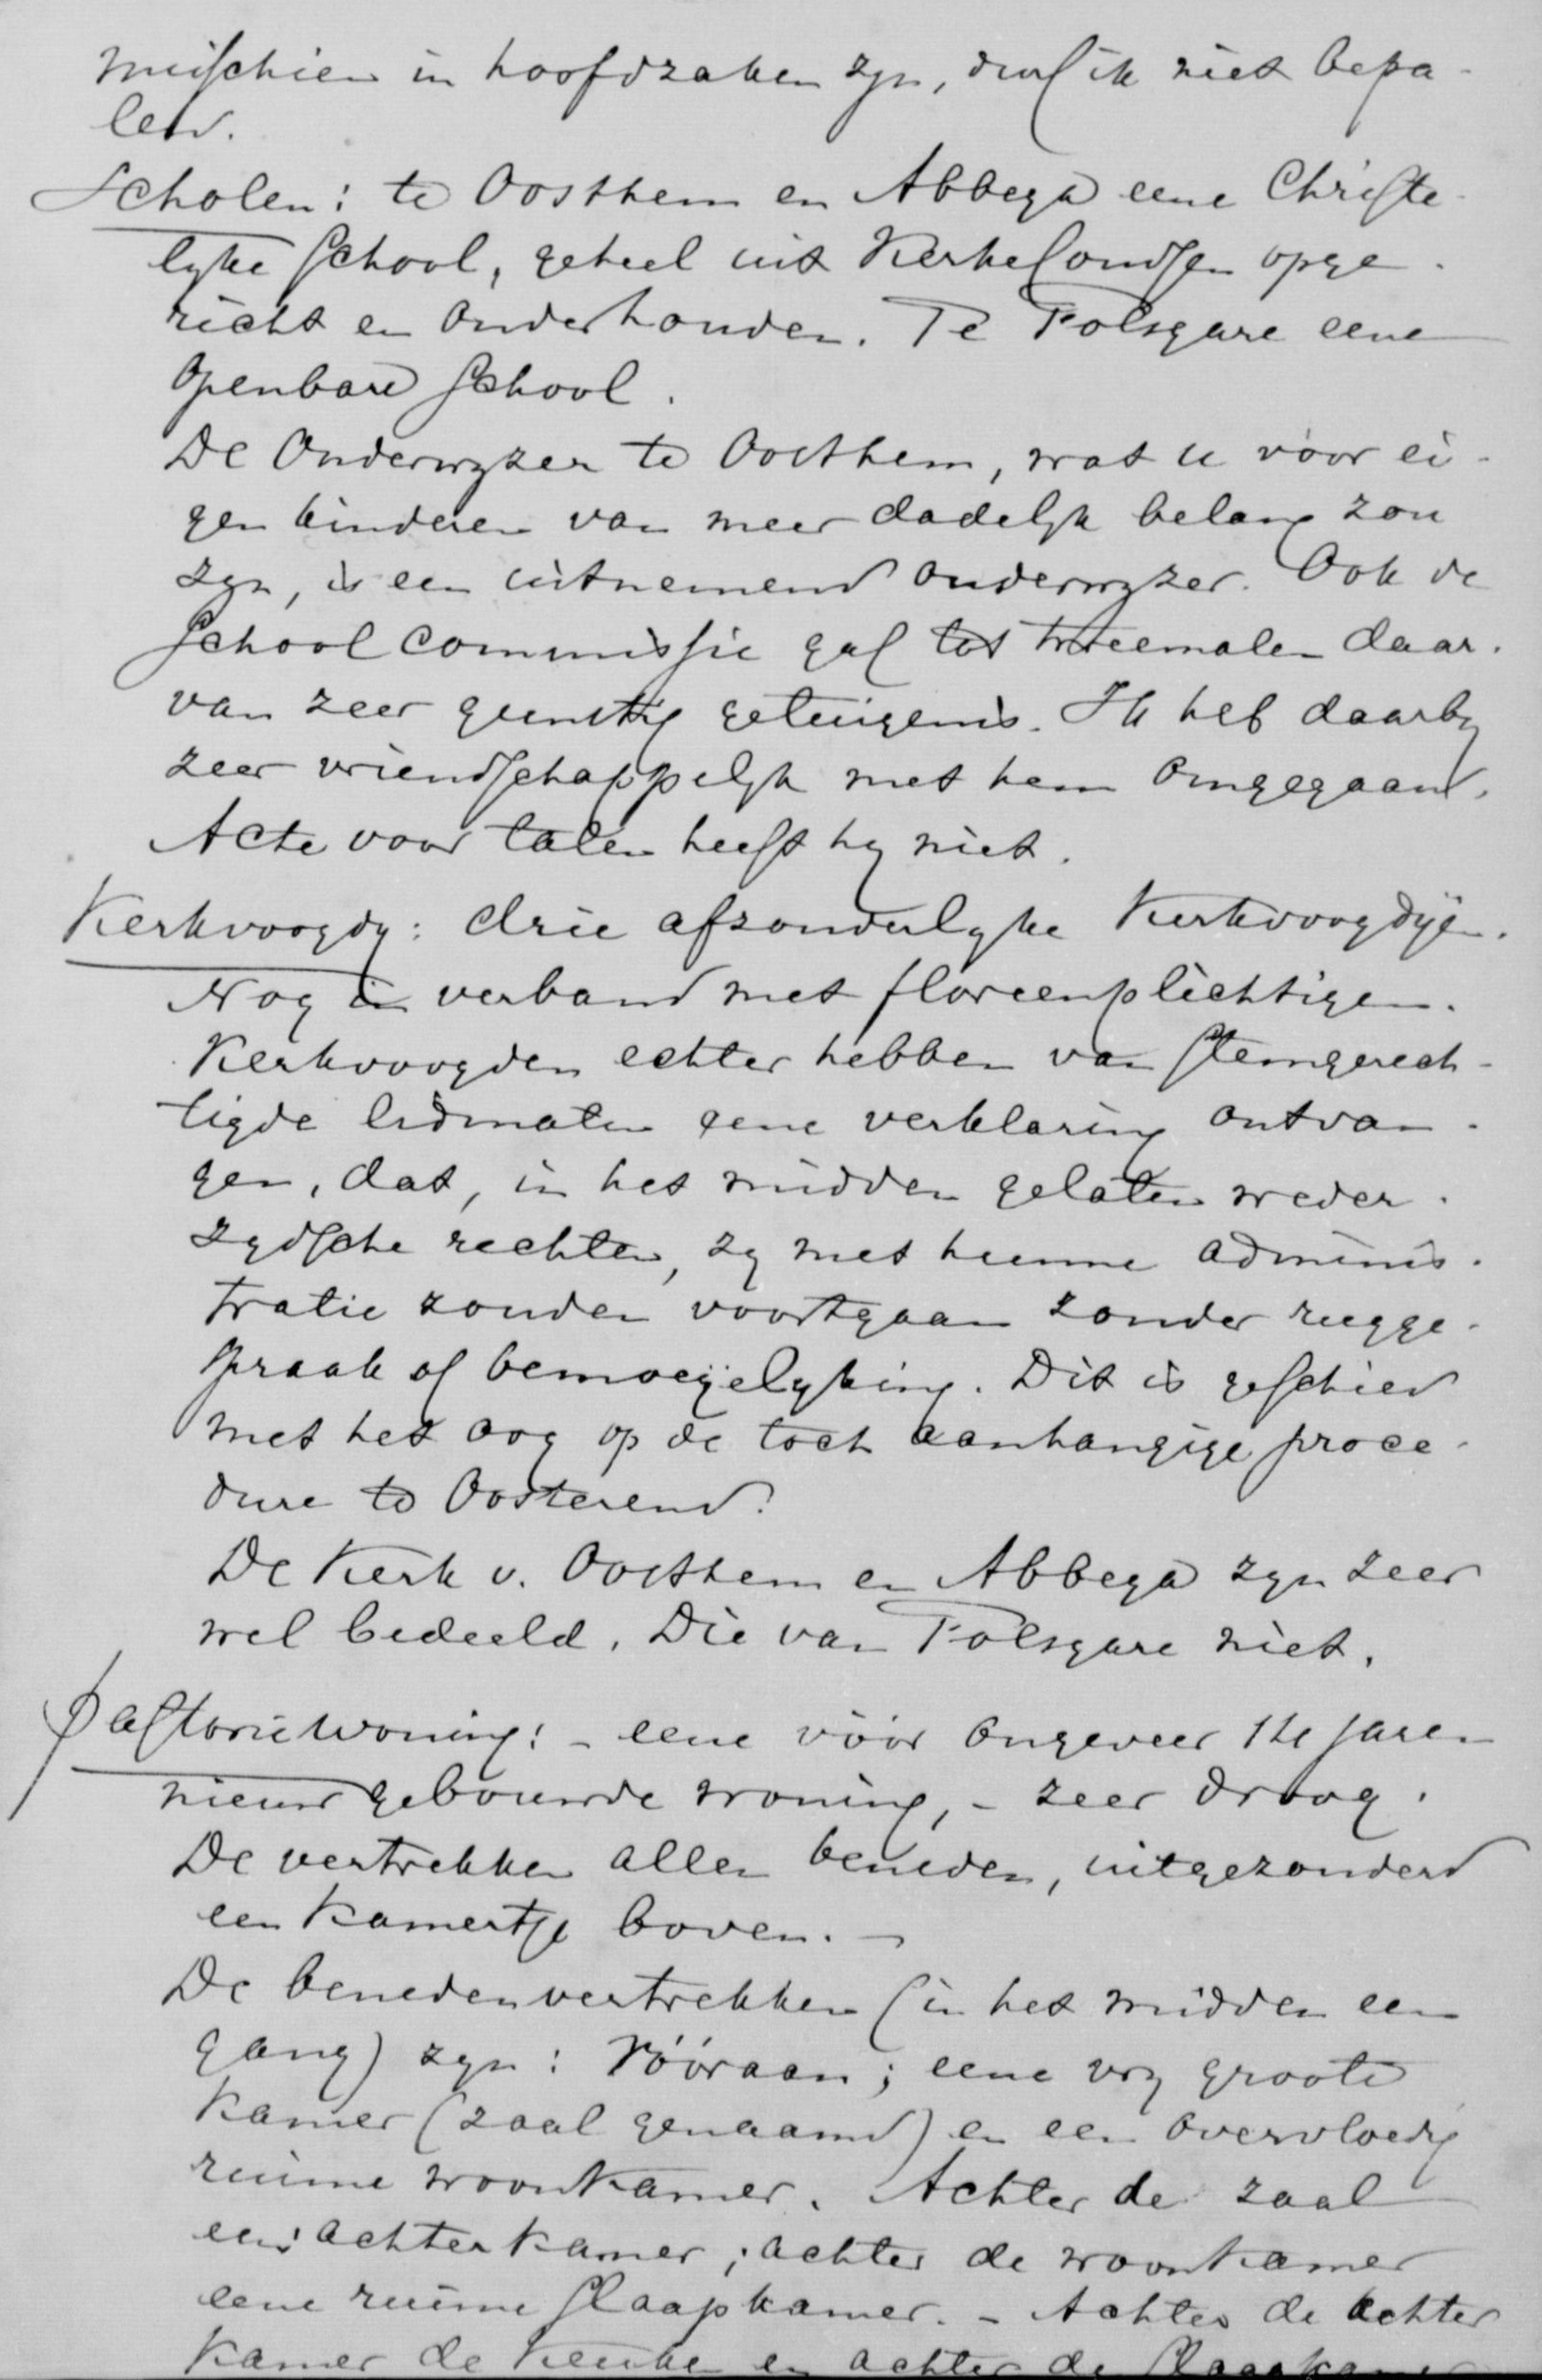 misschien in hoofdzaken zyn, durf ik niet bepa-
len.
Scholen: te Oosthem en Abbega eene Christe-
lyke School, geheel uit Kerkefondsen opge-
richt en onderhouden. Te Folsgare eene
Openbare School.
De Onderwyzer te Oosthem, wat u voor ei-
gen kinderen van meer dadelyk belang zou
zyn, is een uitnemend onderwyzer. Ook de
School commissie gaf tot tweemalen daar-
van zeer gunstig getuigenis. Ik heb daarby
zeer vriendschappelyk met hem omgegaan.
Acte voor talen heeft hy niet.
Kerkvoogdy: drie afzonderlyke Kerkvoogdyen.
Nog in verband met floreenplichtigen.
Kerkvoogden echter hebben van stemgerech-
tigde lidmaten eene verklaring ontvan-
gen, dat, in het midden gelaten weder-
zydsche rechten, zy met hunne adminis-
tratie zouden voortgaan zonder rugge-
spraak of bemoeijelyking. Dit is geschied
met het oog op de toch aanhangige proce-
dure te Oosterend.
De Kerk v. Oosthem en Abbega zyn zeer
wel bedeeld. Die van Folsgare niet.
Pastoriewoning: - eene vóór ongeveer 14 jaren
nieuw gebouwde woning, - zeer droog.
De vertrekken allen beneden, uitgezonderd
een kamertje boven. -
De benedenvertrekken (in het midden een
gang) zyn: Vóóraan; eene vry groote
kamer (zaal genaamd) en een overvloedig
ruime woonkamer. Achter de zaal
een achterkamer; achter de woonkamer
eene ruime slaapkamer. - Achter de achter
kamer de keuken en achter de slaapkamer